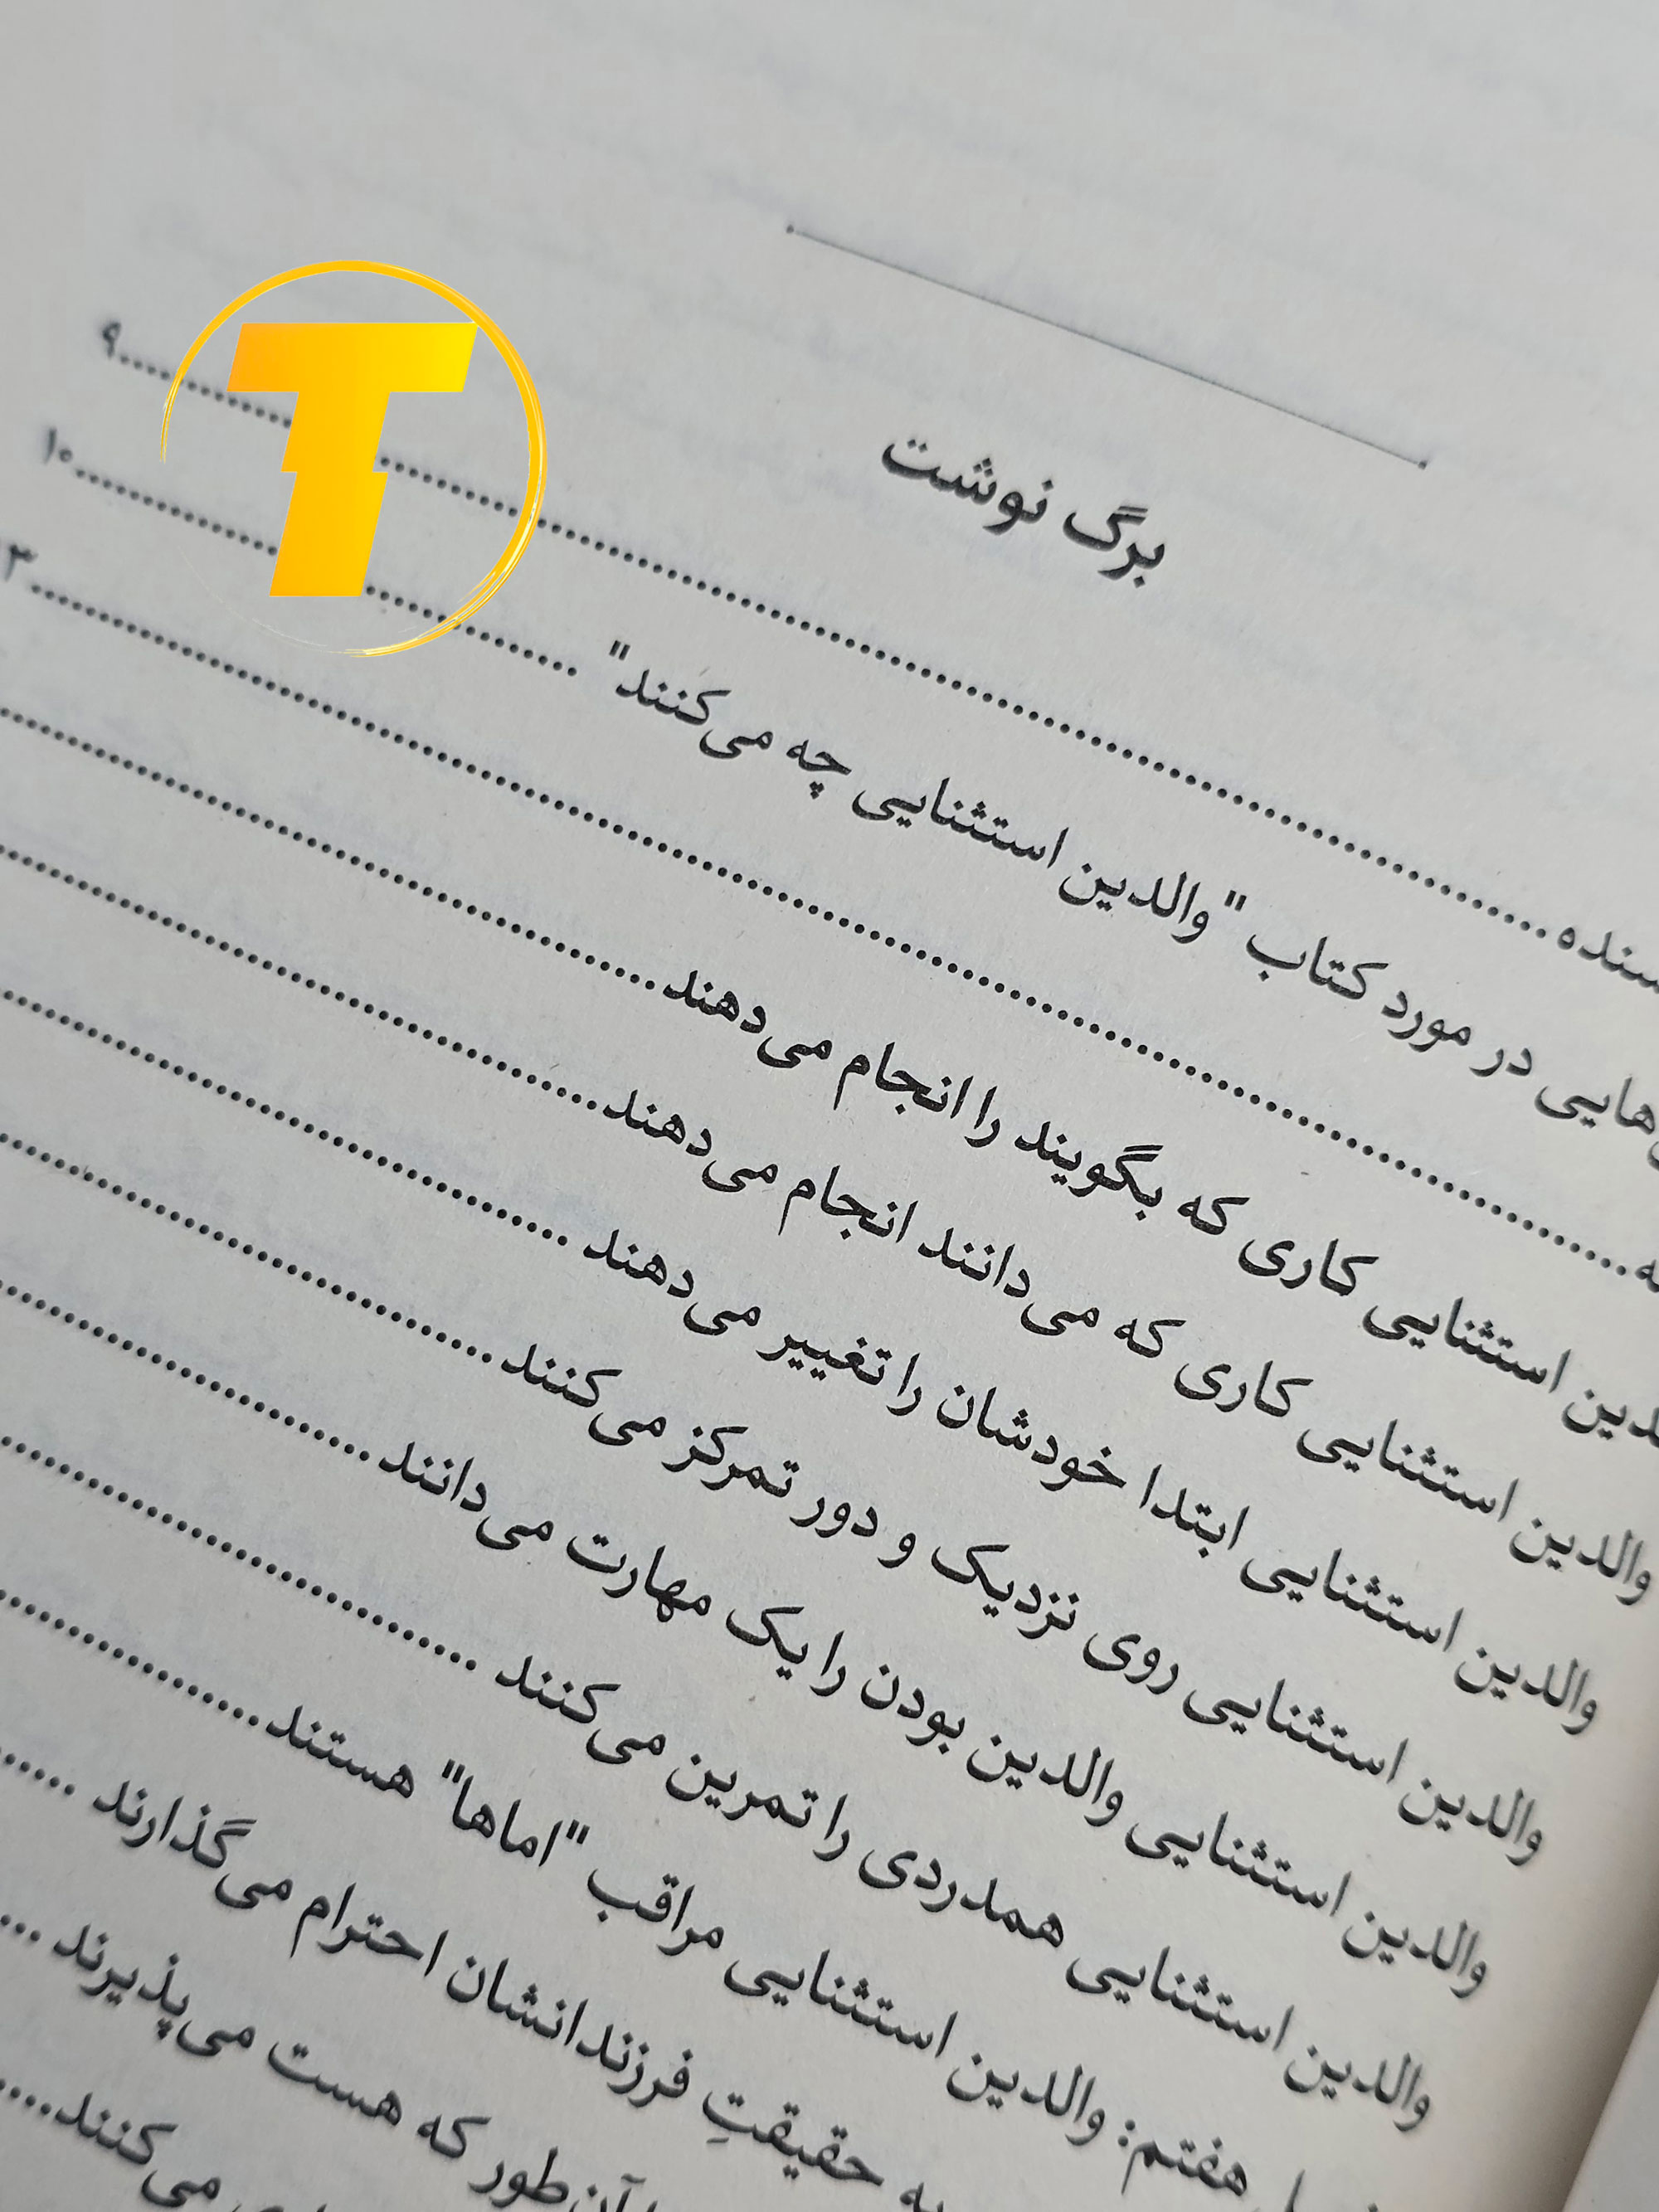 T
برگ نوشت
....................۹
در مورد کتاب "والدین استثنایی چه می‌کنند" ....................۱۰
والدین استثنایی کاری که بگویند را انجام می‌دهند....................
والدین استثنایی کاری که می‌دانند انجام می‌دهند....................
والدین استثنایی ابتدا خودشان را تغییر می‌دهند ....................
والدین استثنایی روی نزدیک و دور تمرکز می‌کنند....................
والدین استثنایی والدین بودن را یک مهارت می‌دانند....................
والدین استثنایی همدردی را تمرین می‌کنند ....................
هفتم: والدین استثنایی مراقب "اماها" هستند....................
به حقیقتِ فرزندانشان احترام می‌گذارند .....
آن‌طور که هست می‌پذیرند ...
می‌کنند....